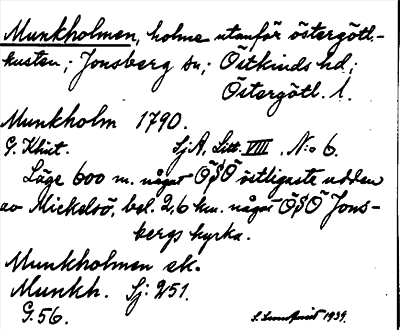 Munkholmen, holme utanför östergötl.-
kusten; Jonsberg sn; Östkinds hd;
Östergötl. l.
Munkholm 1790.
G. Khut. SjA. Litt. VIII. N:o 6.
Läge 600 m. något ÖSÖ östligaste udden
av Mickelsö, bel. 2,6 km. något ÖSÖ Jons-
bergs kyrka.
Munkholmen ek.
Munkh. Sj: 251.
G. 56. 1939.